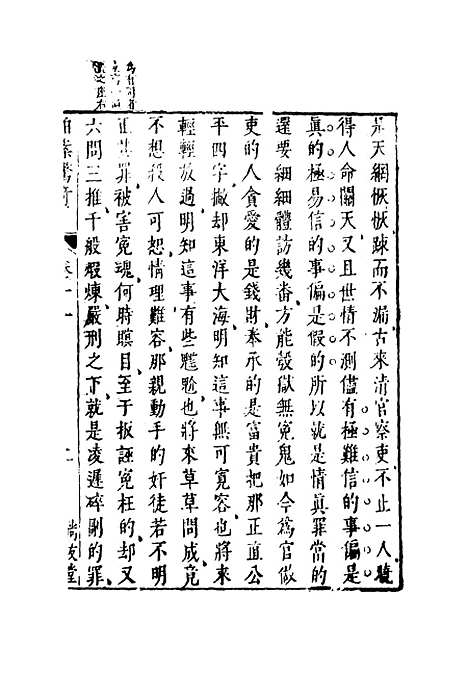 是天網恢恢疎而不漏古來清官察吏不止一人曉
得人命關天又且世情不測儘有極難信的事偏是
真的極易信的事偏是假的所以就是情真罪當的
還要細細體訪幾番方能彀獄無冤鬼如今為官做
吏的人貪愛的是錢財奉承的是富貴把那正直公
平四字撇却東洋大海明知這事無可寬容也將來
輕輕放過明知這事有些尷尬也將來草草問成竟
不想殺人可恕情理難容那親動手的奸徒若不明
正其罪被害冤魂何時瞑目至于扳誣冤枉的却又
六問三推千般煆煉嚴刑之下就是凌遲碎剮的罪
拍案驚奇
卷十一
二
尚友堂